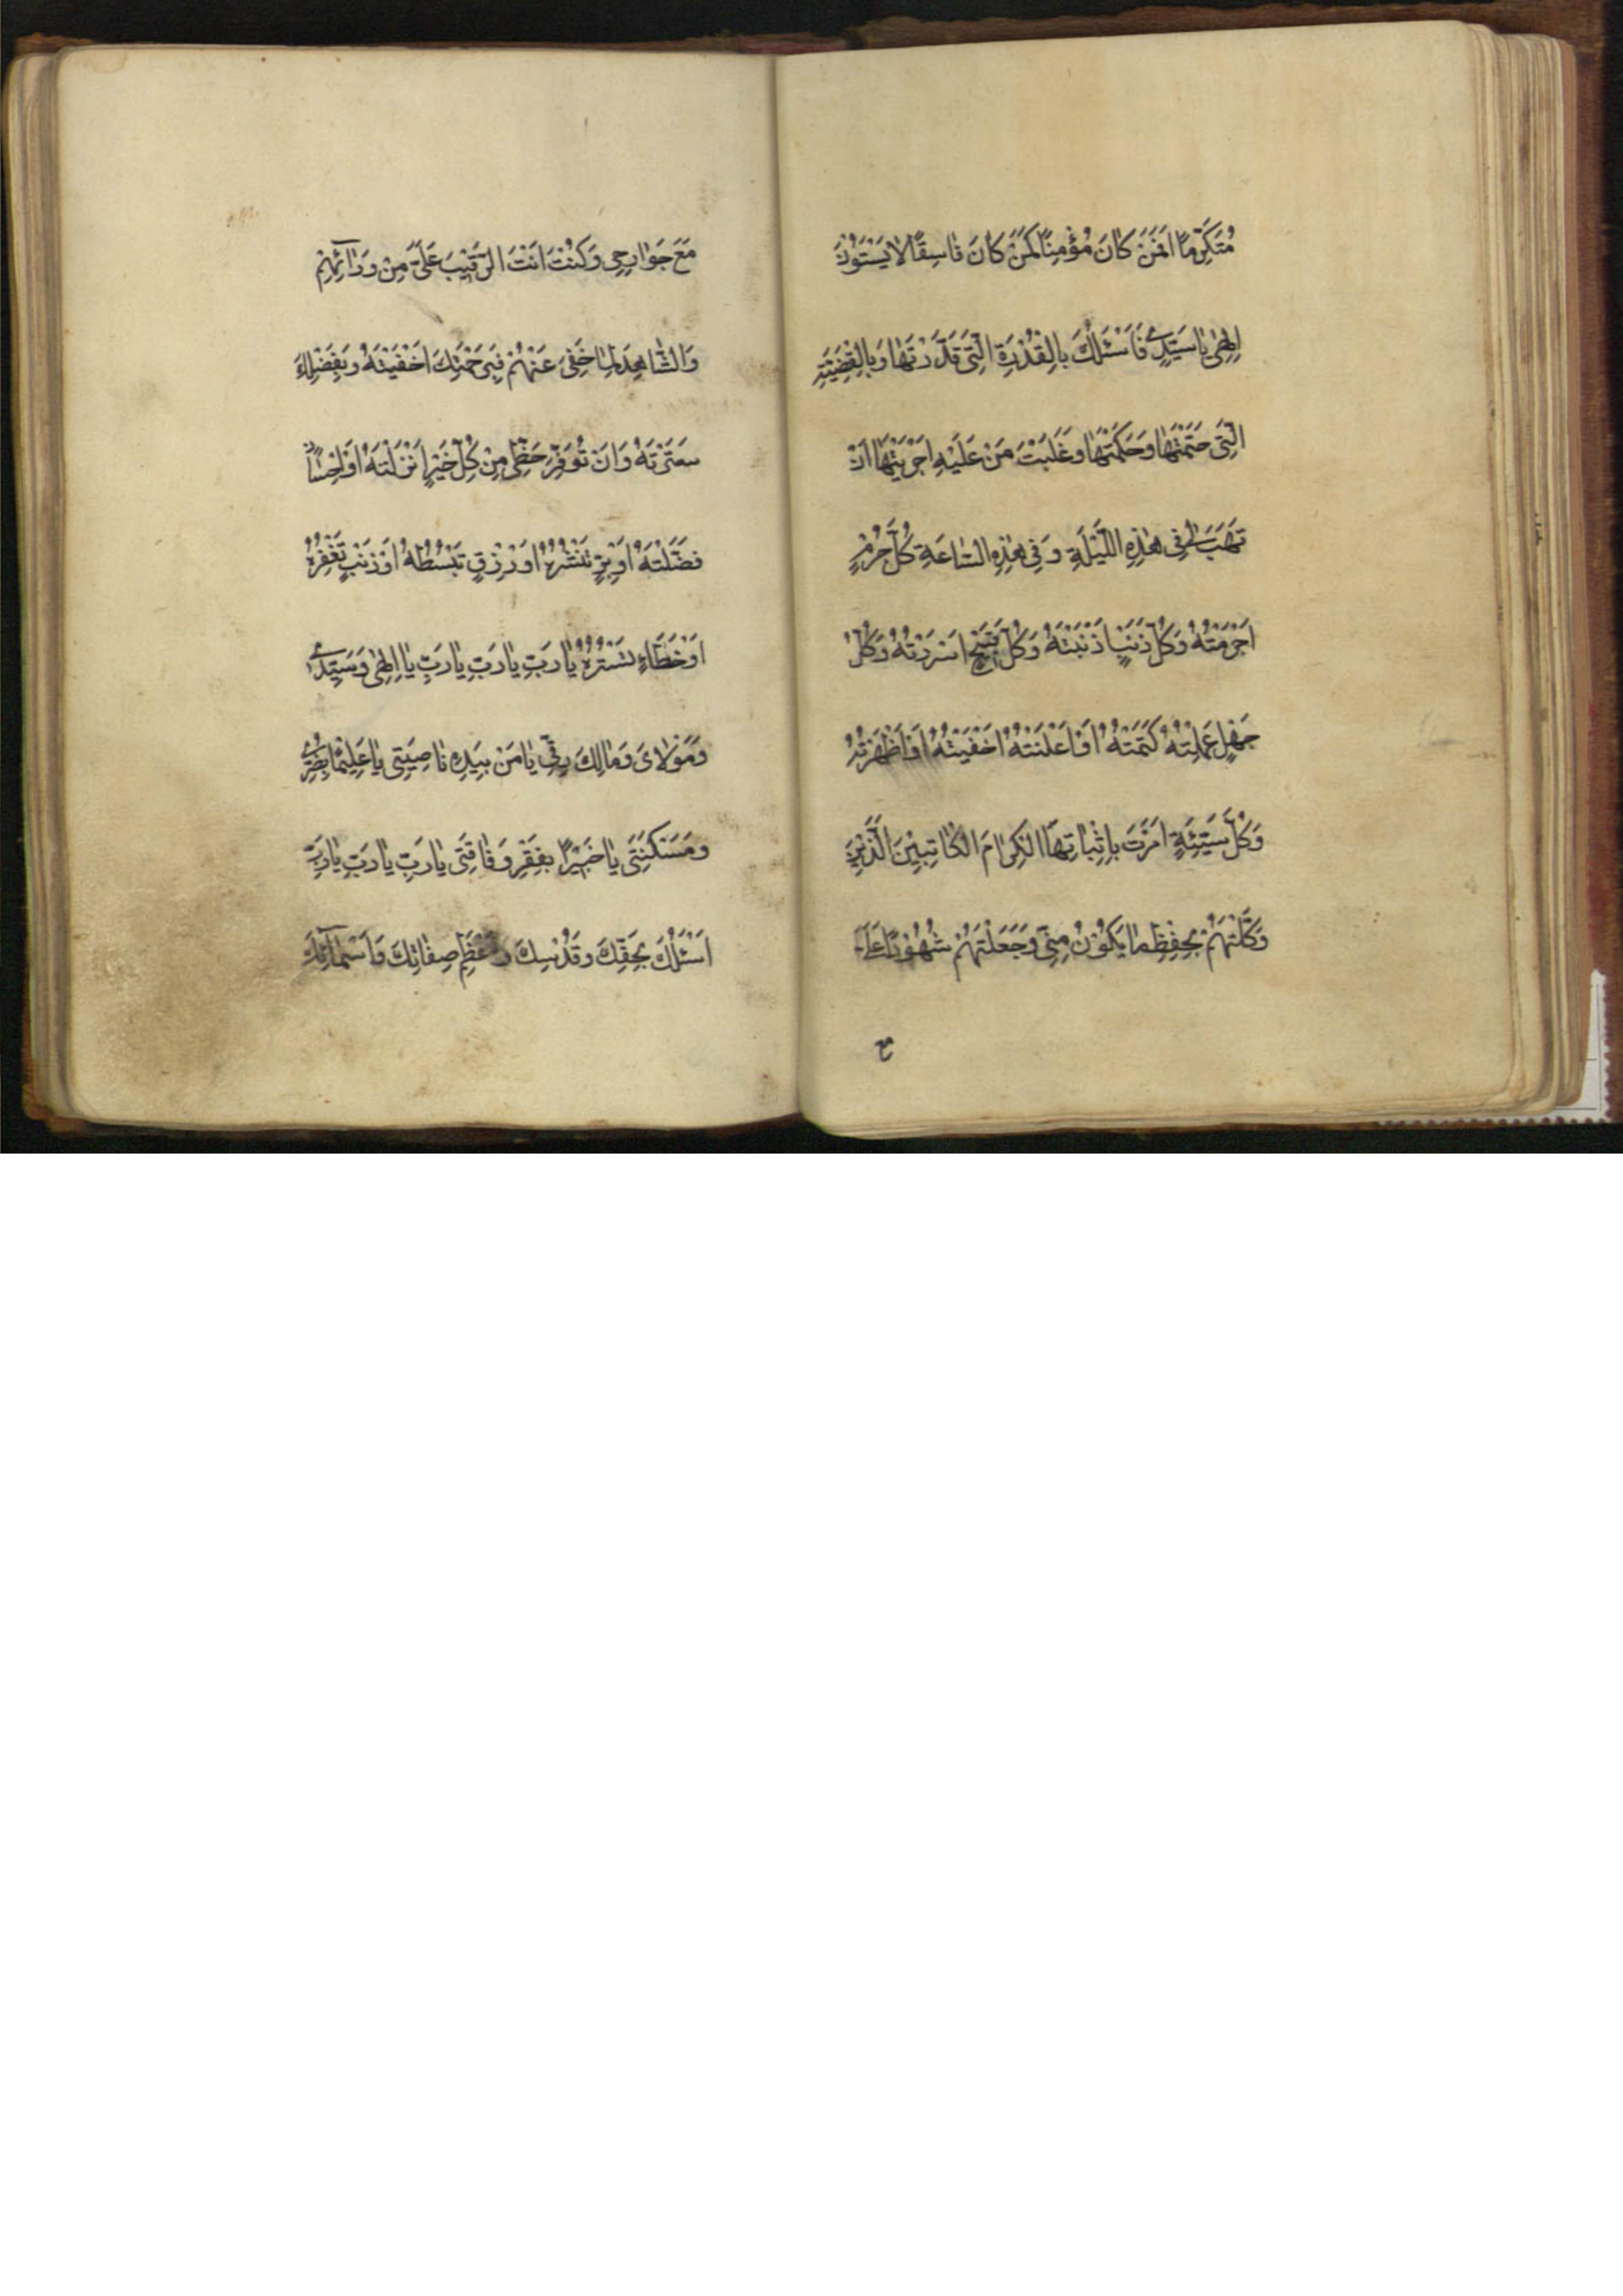 مُتَكَرِّمًا اَفَمَنْ كَانَ مُؤْمِنًا كَمَنْ كَانَ فَاسِقًا لَا يَسْتَوُنَ
اِلٰهِى يَا سَيِّدِى فَاَسْئَلُكَ بِالْقُدْرَةِ الَّتِى قَدَّرْتَهَا وَبِالْقَضِيَّةِ
الَّتِى حَتَمْتَهَا وَحَكَمْتَهَا وَغَلَبْتَ مَنْ عَلَيْهِ اَجْرَيْتَهَا اَنْ
تَهَبَ لِى فِى هٰذِهِ اللَّيْلَةِ وَفِى هٰذِهِ السَّاعَةِ كُلَّ جُرْمٍ
اَجْرَمْتُهُ وَكُلَّ ذَنْبٍ اَذْنَبْتُهُ وَكُلَّ قَبِيْحٍ اَسْرَرْتُهُ وَكُلَّ
جَهْلٍ عَمِلْتُهُ كَتَمْتُهُ اَوْ اَعْلَنْتُهُ اَخْفَيْتُهُ اَوْ اَظْهَرْتُهُ
وَكُلَّ سَيِّئَةٍ اَمَرْتَ بِاِثْبَاتِهَا الْكِرَامَ الْكَاتِبِيْنَ الَّذِيْنَ
وَكَّلْتَهُمْ بِحِفْظِ مَا يَكُوْنُ مِنِّى وَجَعَلْتَهُمْ شُهُوْدًا عَلَىَّ
مع
مَعَ جَوَارِحِى وَكُنْتَ اَنْتَ الرَّقِيْبَ عَلَىَّ مِنْ وَرَآئِهِمْ
وَالشَّاهِدَ لِمَا خَفِىَ عَنْهُمْ وَبِرَحْمَتِكَ اَخْفَيْتَهُ وَبِفَضْلِكَ
سَتَرْتَهُ وَاَنْ تُوَفِّرَ حَظِّى مِنْ كُلِّ خَيْرٍ اَنْزَلْتَهُ اَوْ اِحْسَانٍ
فَضَّلْتَهُ اَوْ بِرٍّ نَشَرْتَهُ اَوْ رِزْقٍ تَبْسُطُهُ اَوْ ذَنْبٍ تَغْفِرُهُ
اَوْ خَطَاءٍ تَسْتُرُهُ يَا رَبِّ يَا رَبِّ يَا رَبِّ يَا اِلٰهِى وَسَيِّدِى
وَمَوْلَاىَ وَمَالِكَ رِقِّى يَا مَنْ بِيَدِهِ نَاصِيَتِى يَا عَلِيْمًا بِضُرِّى
وَمَسْكَنَتِى يَا خَبِيْرًا بِفَقْرِى وَفَاقَتِى يَا رَبِّ يَا رَبِّ يَا رَبِّ
اَسْئَلُكَ بِحَقِّكَ وَقُدْسِكَ وَاَعْظَمِ صِفَاتِكَ وَاَسْمَآئِكَ